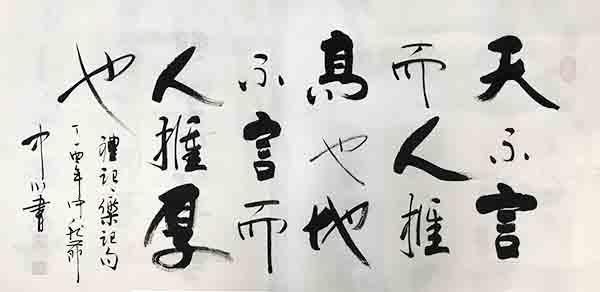 天不言
而人推
髙也地
不言而
人推厚
也
禮記樂記句
丁酉年中秋節
川書